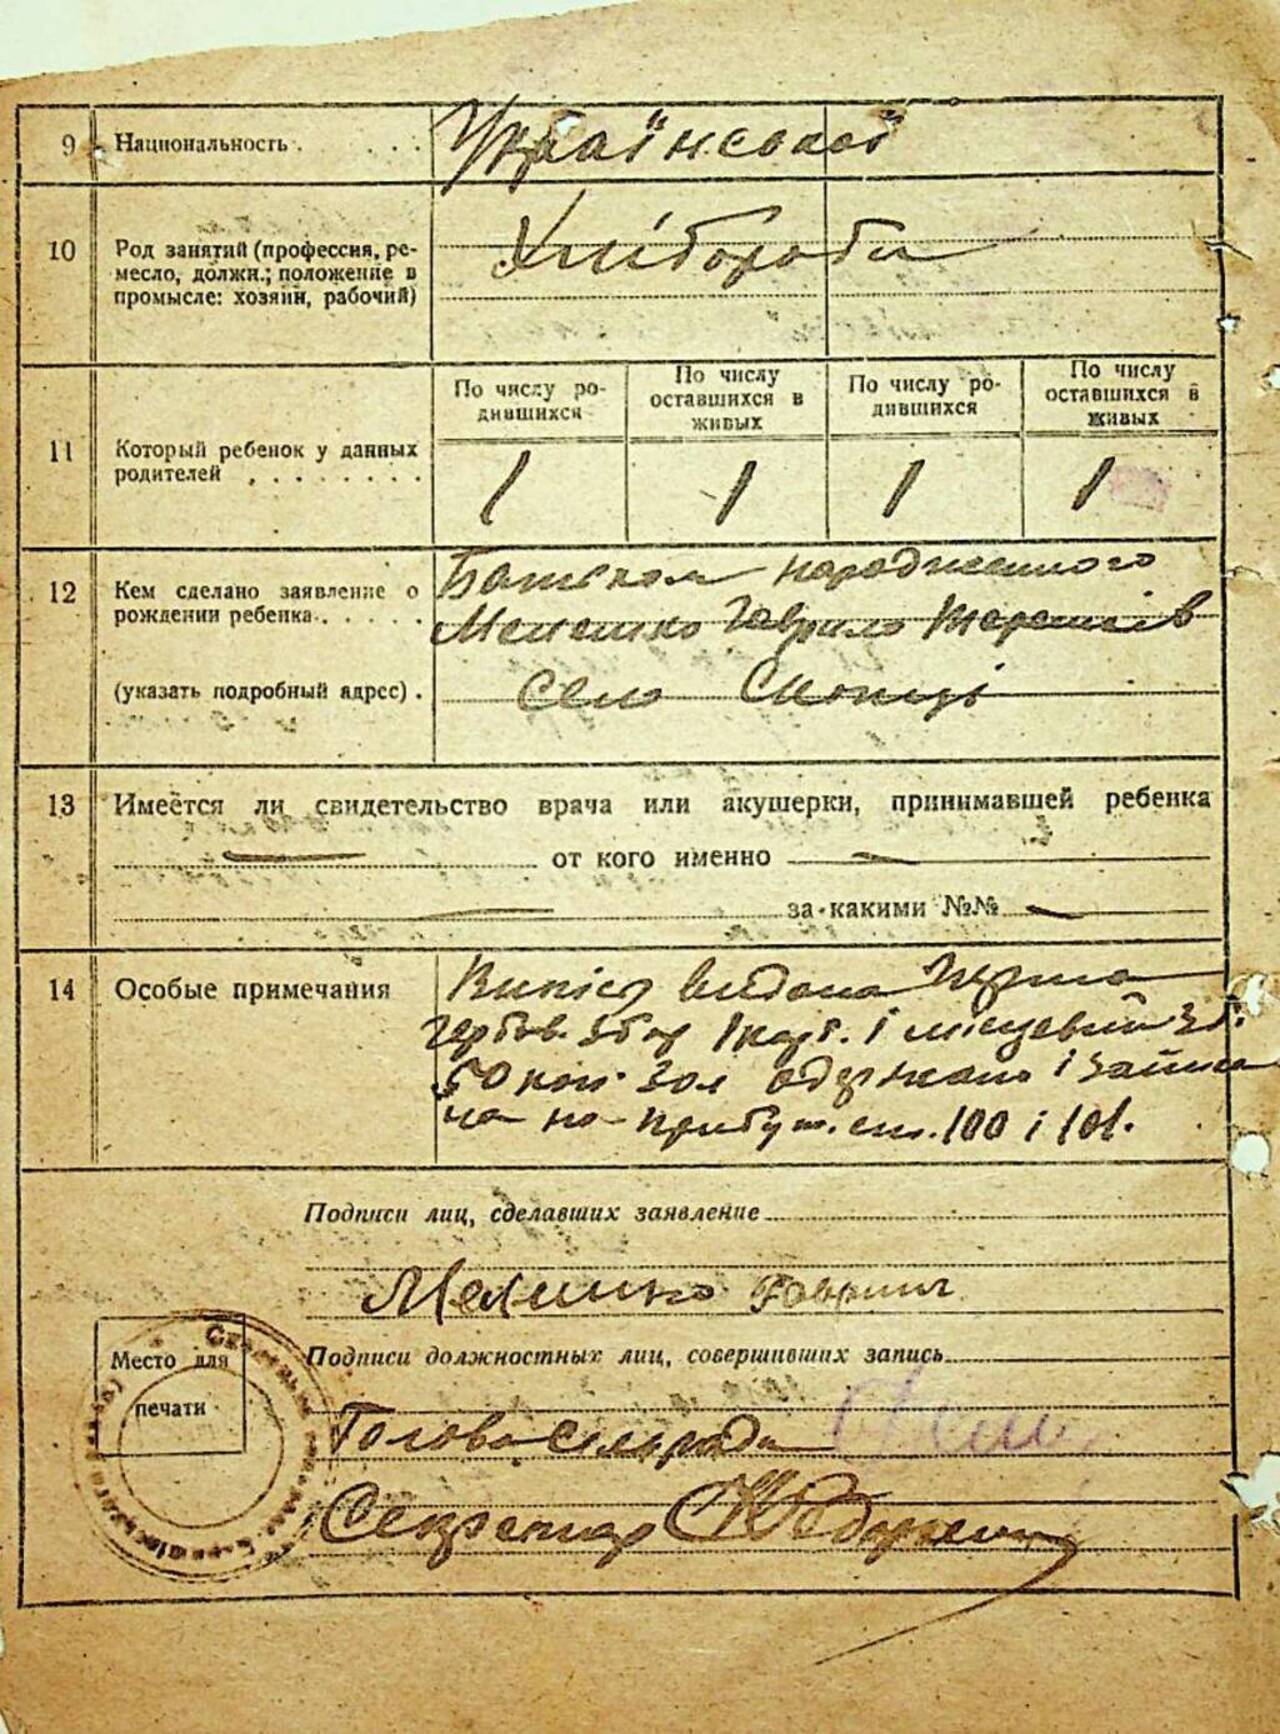 9 Национальность . . . . Української
10 Род занятий (профессия, ре-
месло, должн.; положение в
промысле: хозяин, рабочий)
Хлібороби
По числу ро-
дившихся
По числу
оставшихся в
живых
По числу ро-
дившихся
По числу
оставшихся в
живых
11 Который ребенок у данных
родителей . . . . . . . .
1 1 1 1
12 Кем сделано заявление о
рождении ребенка . . . . .
(указать подробный адрес) .
Батьком народженного
Мелешко Гаврило
село Скопці
13 Имеётся ли свидетельство врача или акушерки, принимавшей ребенка
от кого именно
за какими №№
14 Особые примечания
Випісь видана Перша
гербов. збор 1 карб. і місцевий зб.
50 коп. зол одержано і записа
на на прибут. ст. 100 і 101.
Подписи лиц, сделавших заявление
Мелешко Гаврило
Место для
печати
Подписи должностных лиц, совершивших запись
Голова сельради
Секретарь